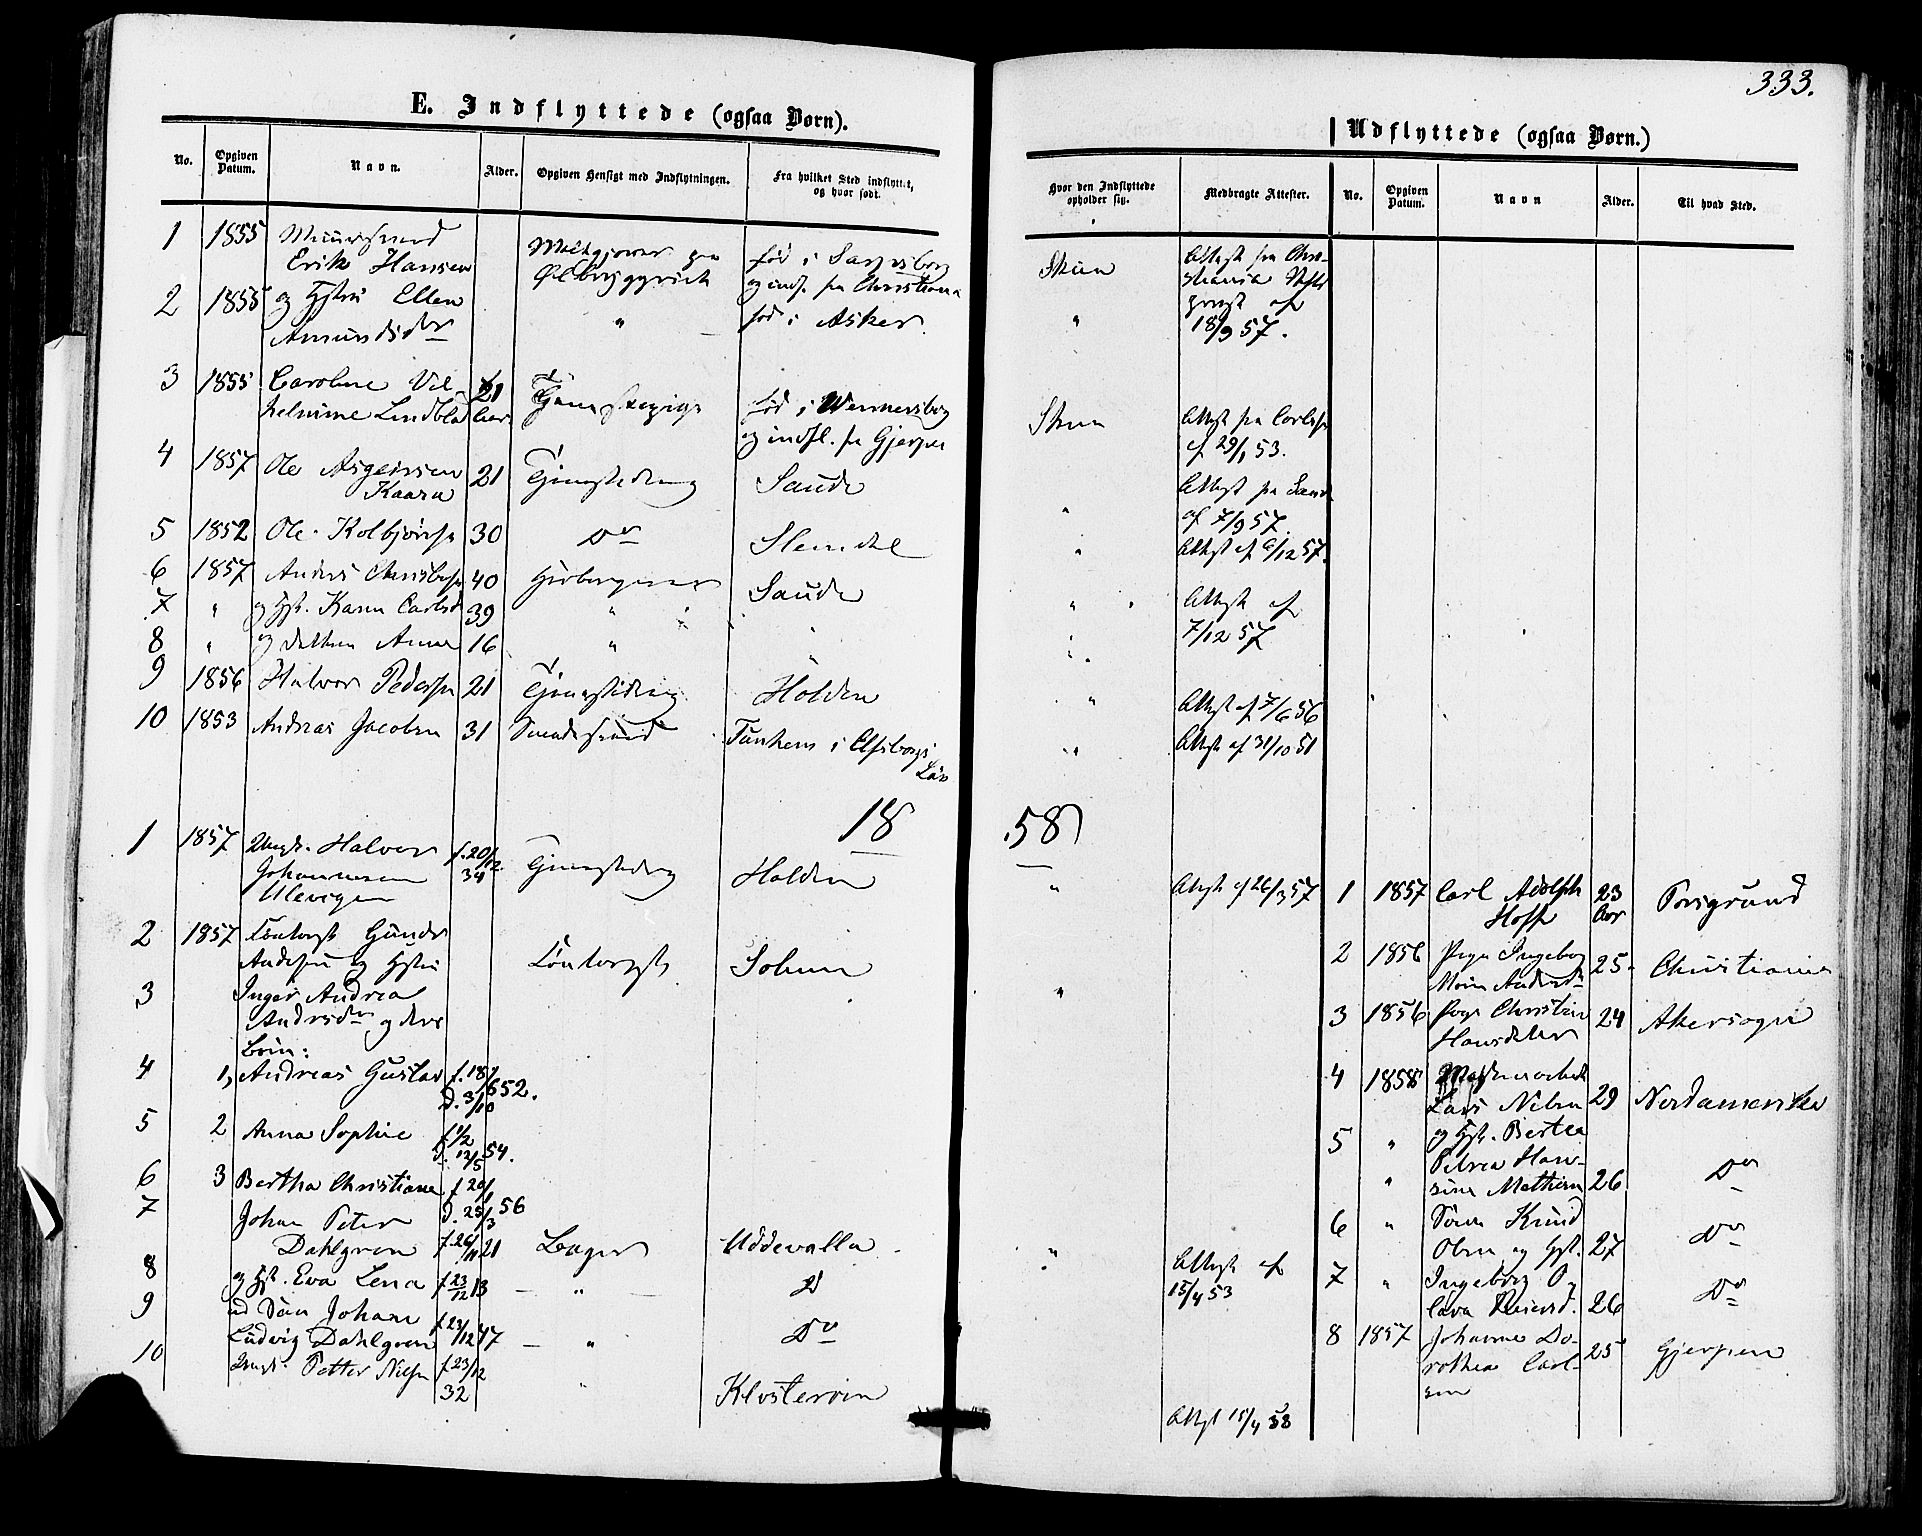 333.
E. Indflyttede (ogsaa Børn).
No. Opgiven Datum. Navn. Alder. Opgiven Hensigt med Indflytningen. Fra hvilket Sted indflyttet, og hvor født.
1 1855 Muursvend Erik Hansen Maltgjører paa Ølbryggerie fød i Sarpsborg og indf. fra Christiania
2 1855 og Hstru Ellen Amundsdtr " fød i Asker.
3 1855 Caroline Vilhelmine Lindblad 21 Aar Tjenestepige fød i Wennersborg og indfl. fra Gjerpen
4 1857 Ole Asgeirsen Kaasa 21 Tjenestedreng Saude
5 1852 Ole Kolbjørnsen 30 Do Slemdal
6 1857 Anders Christensen 40 Saude
7 " og Hst. Karen Carlsd 39 "
8 " og datteren Anne 16 "
9 1856 Halvor Pedersen 21 Tjenestedreng Holden
10 1853 Andreas Jacobsen 31 Smedesvend Tunhem i Elfsborgs Län
18
1 1857 Ungk. Halvor Johannesen Ulevigen f. 20/12 34 Tjenestedreng Holden
2 1857 Gunder Andersen og Hstru Solum
3 Inger Andrea Andersdtr og deres Børn:
4 1, Andreas Gustav f. 18/6 52. d. 3/10
5 2 Anna Sophie f. 1/2 d. 12/5 54.
6 3 Bertha Christiane f. 20/1 56 d. 25/3
7 Johan Peter Dahlgren f. 26/11 21 Bager Uddevalla
8 og Hst. Eva Lena f. 23/12 13 " Do
9 ud Søn Johan Ludvig Dahlgren f. 23/12 47 " Do
10 Ungk. Petter Nilsen f. 23/12 32 " Klosterøen
Hvor den Indflyttede opholder sig. Medbragte Attester.
Skien Attest fra Christiania Stiftsprovst af 18/9 57.
"
Skien Attest fra
af 29/1 53.
" Attest fra Saude af 7/9 57.
" Attest af 6/12 57.
" Attest af 7/12 57
"
" Attest af 7/6 56
" Attest af 31/10 51
58
" Attest af 26/3 57
"
" Attest af 15/4 53
Attest 15/4 58
Udflyttede (ogsaa Børn.)
No. Opgiven Datum. Navn Alder. Til hvad Sted.
1 1857 Carl Adolph Hoff 23 Aar Porsgrund
2 1856 Pige Ingeborg Marie Andersd 25. Christiania
3 1856 Pige Christine Hansdatter 24 Akersogn
4 1858 Lars Nilsen 29 Nordamerika
5 " og Hst. Bertea Petrea Hansine Mathisen 26 Do
6 " Søren Knud Olsen og Hst. 27 Do
7 " Ingeborg Olava 26 Do
8 1857 Johanne Dorothea Carlsen 25 Gjerpen